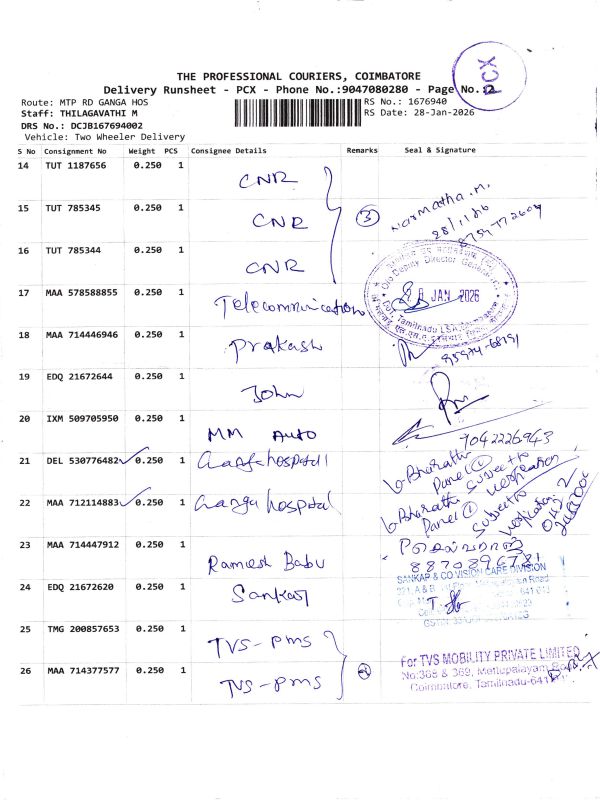 PCX
THE PROFESSIONAL COURIERS, COIMBATORE
Delivery Runsheet - PCX - Phone No.:9047080280 - Page No.:2
Route: MTP RD GANGA HOS
RS No.: 1676940
Staff: THILAGAVATHI M
RS Date: 28-Jan-2026
DRS No.: DCJB167694002
Vehicle: Two Wheeler Delivery
S No Consignment No Weight PCS Consignee Details Remarks Seal & Signature
14 TUT 1187656 0.250 1 CNR
15 TUT 785345 0.250 1 CNR 3 Narmatha.M.
16 TUT 785344 0.250 1 CNR
Deputy Director General
28 JAN 2026
Tamilnadu LSA
17 MAA 578588855 0.250 1 Telecommunication
18 MAA 714446946 0.250 1 Prakash 95974-68191
19 EDQ 21672644 0.250 1 John
20 IXM 509705950 0.250 1 MM Auto 9042226943
21 DEL 530776482 0.250 1 Ganga hospital Bharathi
Subject to
Verification
22 MAA 712114883 0.250 1 Ganga hospital Bharathi
Subject to
Verification
0422
23 MAA 714447912 0.250 1 Ramesh Babu
8870896781
24 EDQ 21672620 0.250 1 Sankar
SANKAR & CO VISION CARE DIVISION
25 TMG 200857653 0.250 1 TVS-PMS
26 MAA 714377577 0.250 1 TVS-PMS 2
For TVS MOBILITY PRIVATE LIMITED
No:368 & 369, Mettupalayam
Coimbatore, Tamilnadu-641